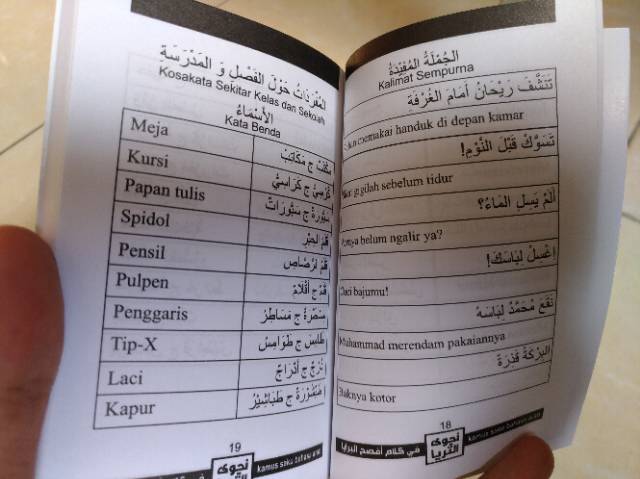 الجُمْلَةُ المُفِيْدَةُ
Kalimat Sempurna
تَنَشَّفَ رَيْحَانُ أَمَامَ الْغُرْفَةِ
memakai handuk di depan kamar
تَسَوَّكْ قَبْلَ النَّوْمِ!
gigilah sebelum tidur
أَلَمْ يَسِلِ المَاءُ؟
belum ngalir ya?
اِغْسِلْ لِبَاسَكَ!
Cuci bajumu!
نَقَعَ مُحَمَّدٌ لِبَاسَهُ
Muhammad merendam pakaiannya
البِرْكَةُ قَذِرَةٌ
kotor
18
في كلام أفصح البرايا نجوى الثريا kamus saku bahasa arab
المُفْرَدَاتُ حَوْلَ الفَصْلِ وَ المَدْرَسَةِ
Kosakata Sekitar Kelas dan Sekolah
الأَسْمَاءُ
Kata Benda
Meja مَكْتَبٌ ج مَكَاتِبُ
Kursi كُرْسِيٌّ ج كَرَاسِيُّ
Papan tulis سَبُّوْرَةٌ ج سَبُّوْرَاتٌ
Spidol قَلَمُ الحِبْرِ
Pensil قَلَمُ الرَّصَاصِ
Pulpen قَلَمٌ ج أَقْلَامٌ
Penggaris ج مَسَاطِرُ
Tip-X ج طَوَامِسُ
Laci ج أَدْرَاجٌ
Kapur ج طَبَاشِيْرُ
19
في كلام أفصح البرايا نجوى kamus saku bahasa arab